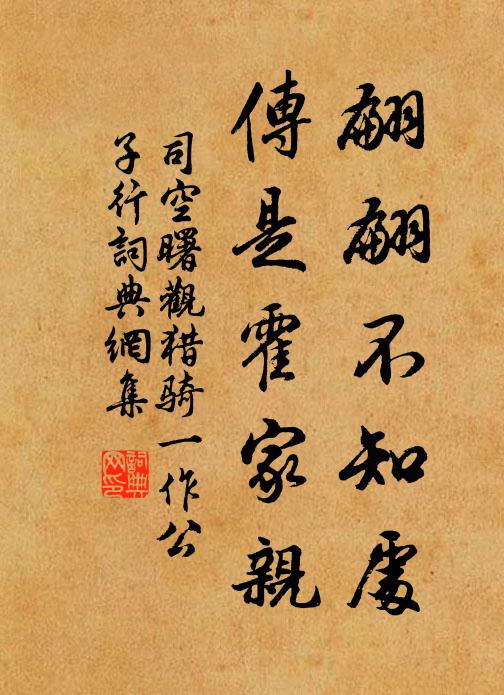 翩翩不知處
傳是霍家親
司空曙觀猎骑一作公
子行詞典網集
詞典
网印